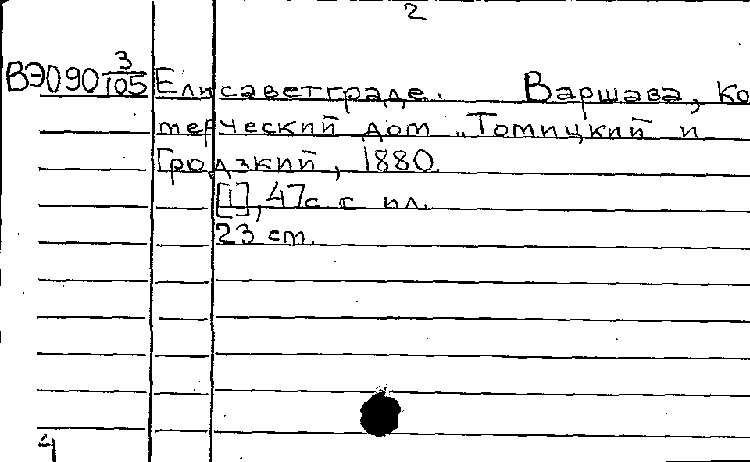 2
ВЭ090 3/105 Елисаветграде. Варшава, Ко
мерческий дом „Томицкий и
Гродзкий, 1880.
[1], 47с с ил.
23 cm.
4